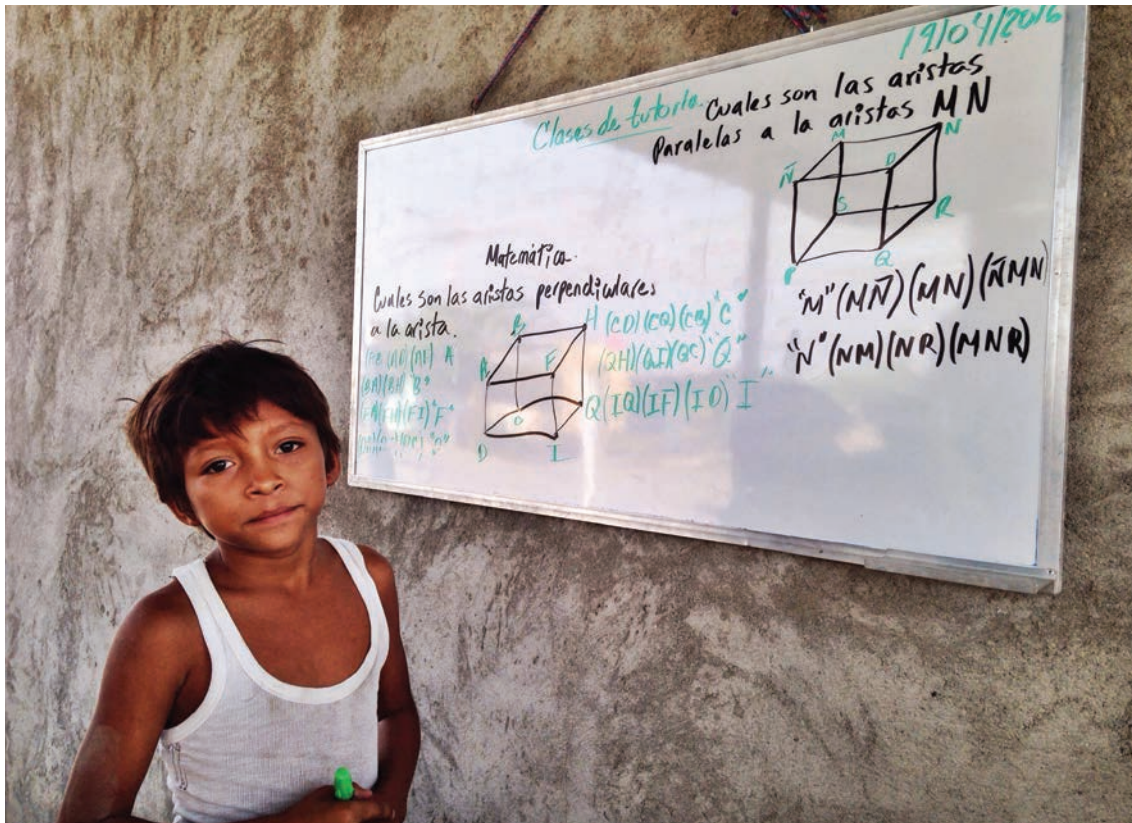 19/04/2016
Clases de tutoria
Cuales son las aristas
Paralelas a la aristas MN
M N
Ñ O
S R
P Q
"M" (MÑ) (MN) (ÑMN)
"N" (NM) (NR) (MNR)
Matemática.
Cuales son las aristas perpendiculares
a la arista.
A
"B"
"F"
B H
A F
D I
Q
(CD) (CQ) (CB) "C"
(QH) (QI) (QC) "Q"
(IQ) (IF) (ID) "I"